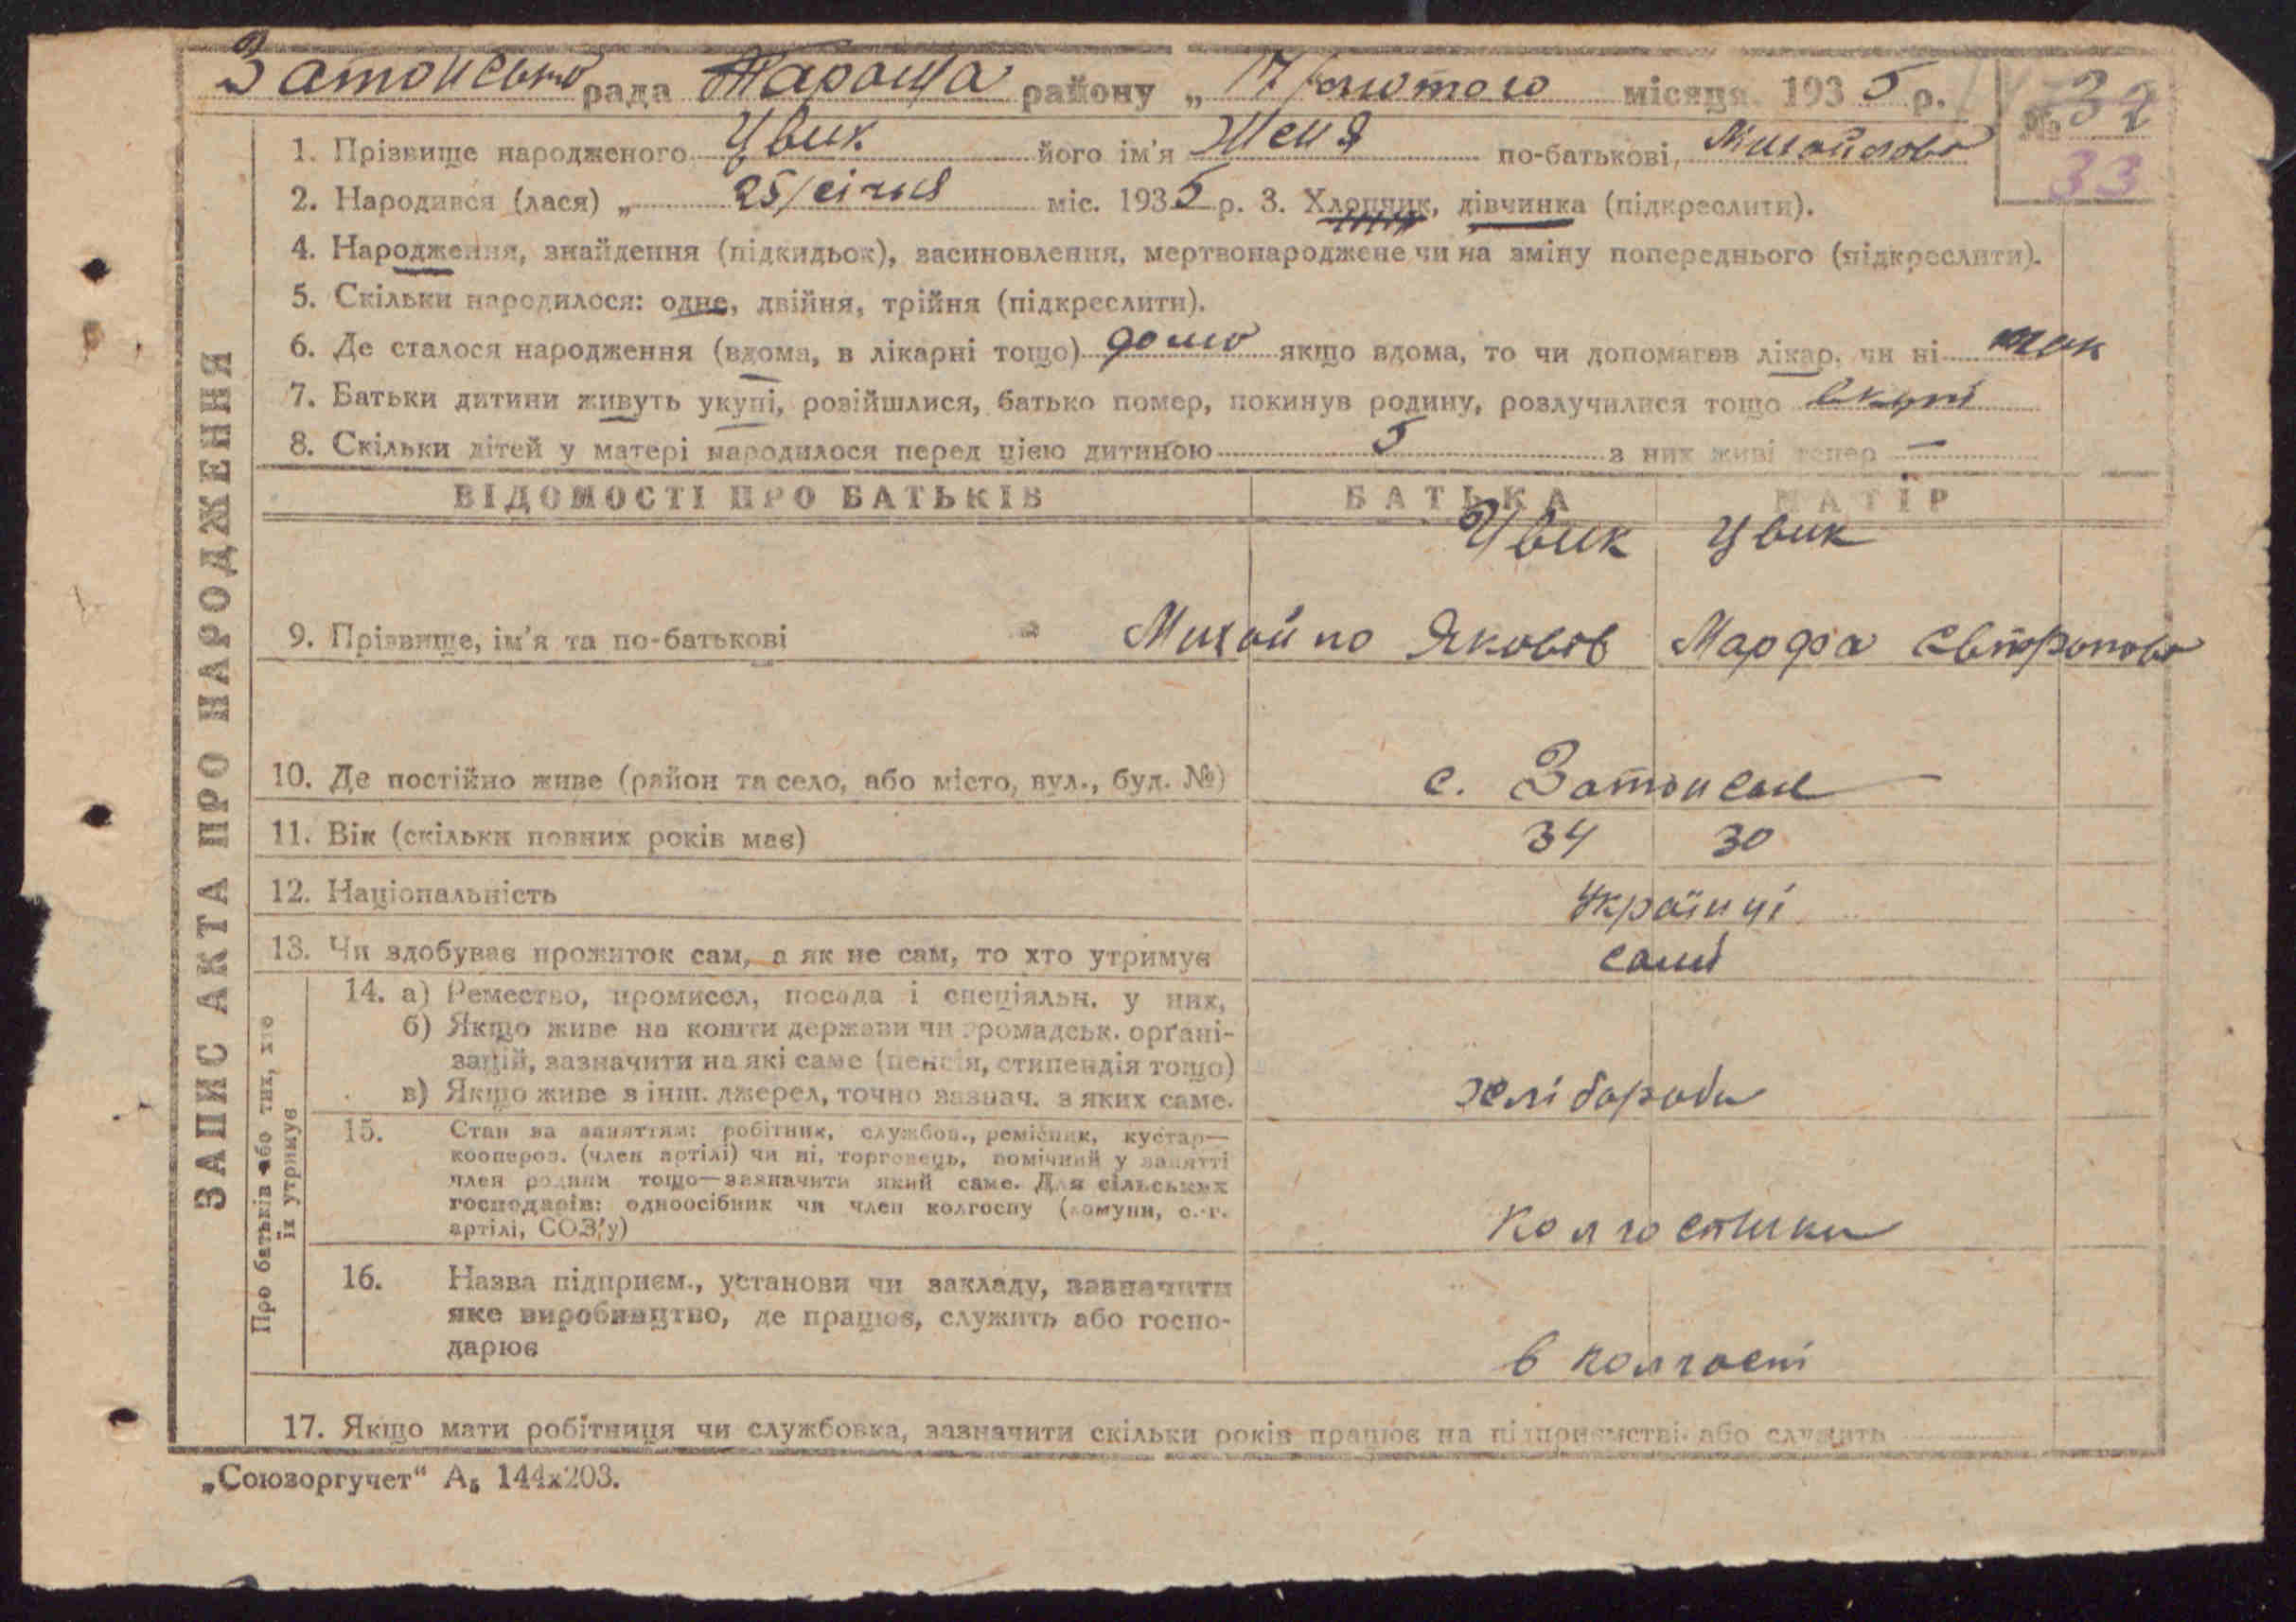 Затонсько рада Тараща району „ 17/лютого місяця 1935 р. № 32
33
1. Прізвище народженого Цвик його ім'я Женя по-батькові, Михайлова
2. Народився (лася) „ 25/січня міс. 1935 р. 3. Хлопчик, дівчинка (підкреслити).
4. Народження, знайдення (підкидьок), засиновлення, мертвонароджене чи на зміну попереднього (підкреслити).
5. Скільки народилося: одне, двійня, трійня (підкреслити).
6. Де сталося народження (вдома, в лікарні тощо) дома якщо вдома, то чи допомагав лікар, чи ні так
7. Батьки дитини живуть укупі, розійшлися, батько помер, покинув родину, розлучилися тощо вкупі
8. Скільки дітей у матері народилося перед цією дитиною 5 з них живі тепер —
ВІДОМОСТІ ПРО БАТЬКІВ БАТЬКА МАТІР
Цвик Цвик
9. Прізвище, ім'я та по-батькові Михайло Яковів Марфа
10. Де постійно живе (район та село, або місто, вул., буд. №) с.
11. Вік (скільки повних років має) 34 30
12. Національність Українці
13. Чи здобуває прожиток сам, а як не сам, то хто утримує самі
14. а) Ремество, промисел, посада і спеціяльн. у них,
б) Якщо живе на кошти держави чи громадськ. орґані-
зацій, зазначити на які саме (пенсія, стипендія тощо)
в) Якщо живе з інш. джерел, точно зазнач. з яких саме. хлібороби
15. Стан за заняттям: робітник, службов., ремісник, кустар—
коопероз. (член артілі) чи ні, торговець, помічний у занятті
член родини тощо—зазначити який саме. Для сільських
господарів: одноосібник чи член колгоспу (комуни, с.-г.
артілі, СОЗ'у) Колгоспники
16. Назва підприєм., установи чи закладу, зазначити
яке виробництво, де працює, служить або госпо-
дарює в колгоспі
17. Якщо мати робітниця чи службовка, зазначити скільки років працює на підприємстві або служить
„Союзоргучет“ А₅ 144х203.
ЗАПИС АКТА ПРО НАРОДЖЕННЯ
Про батьків або тих, хто
їх утримує